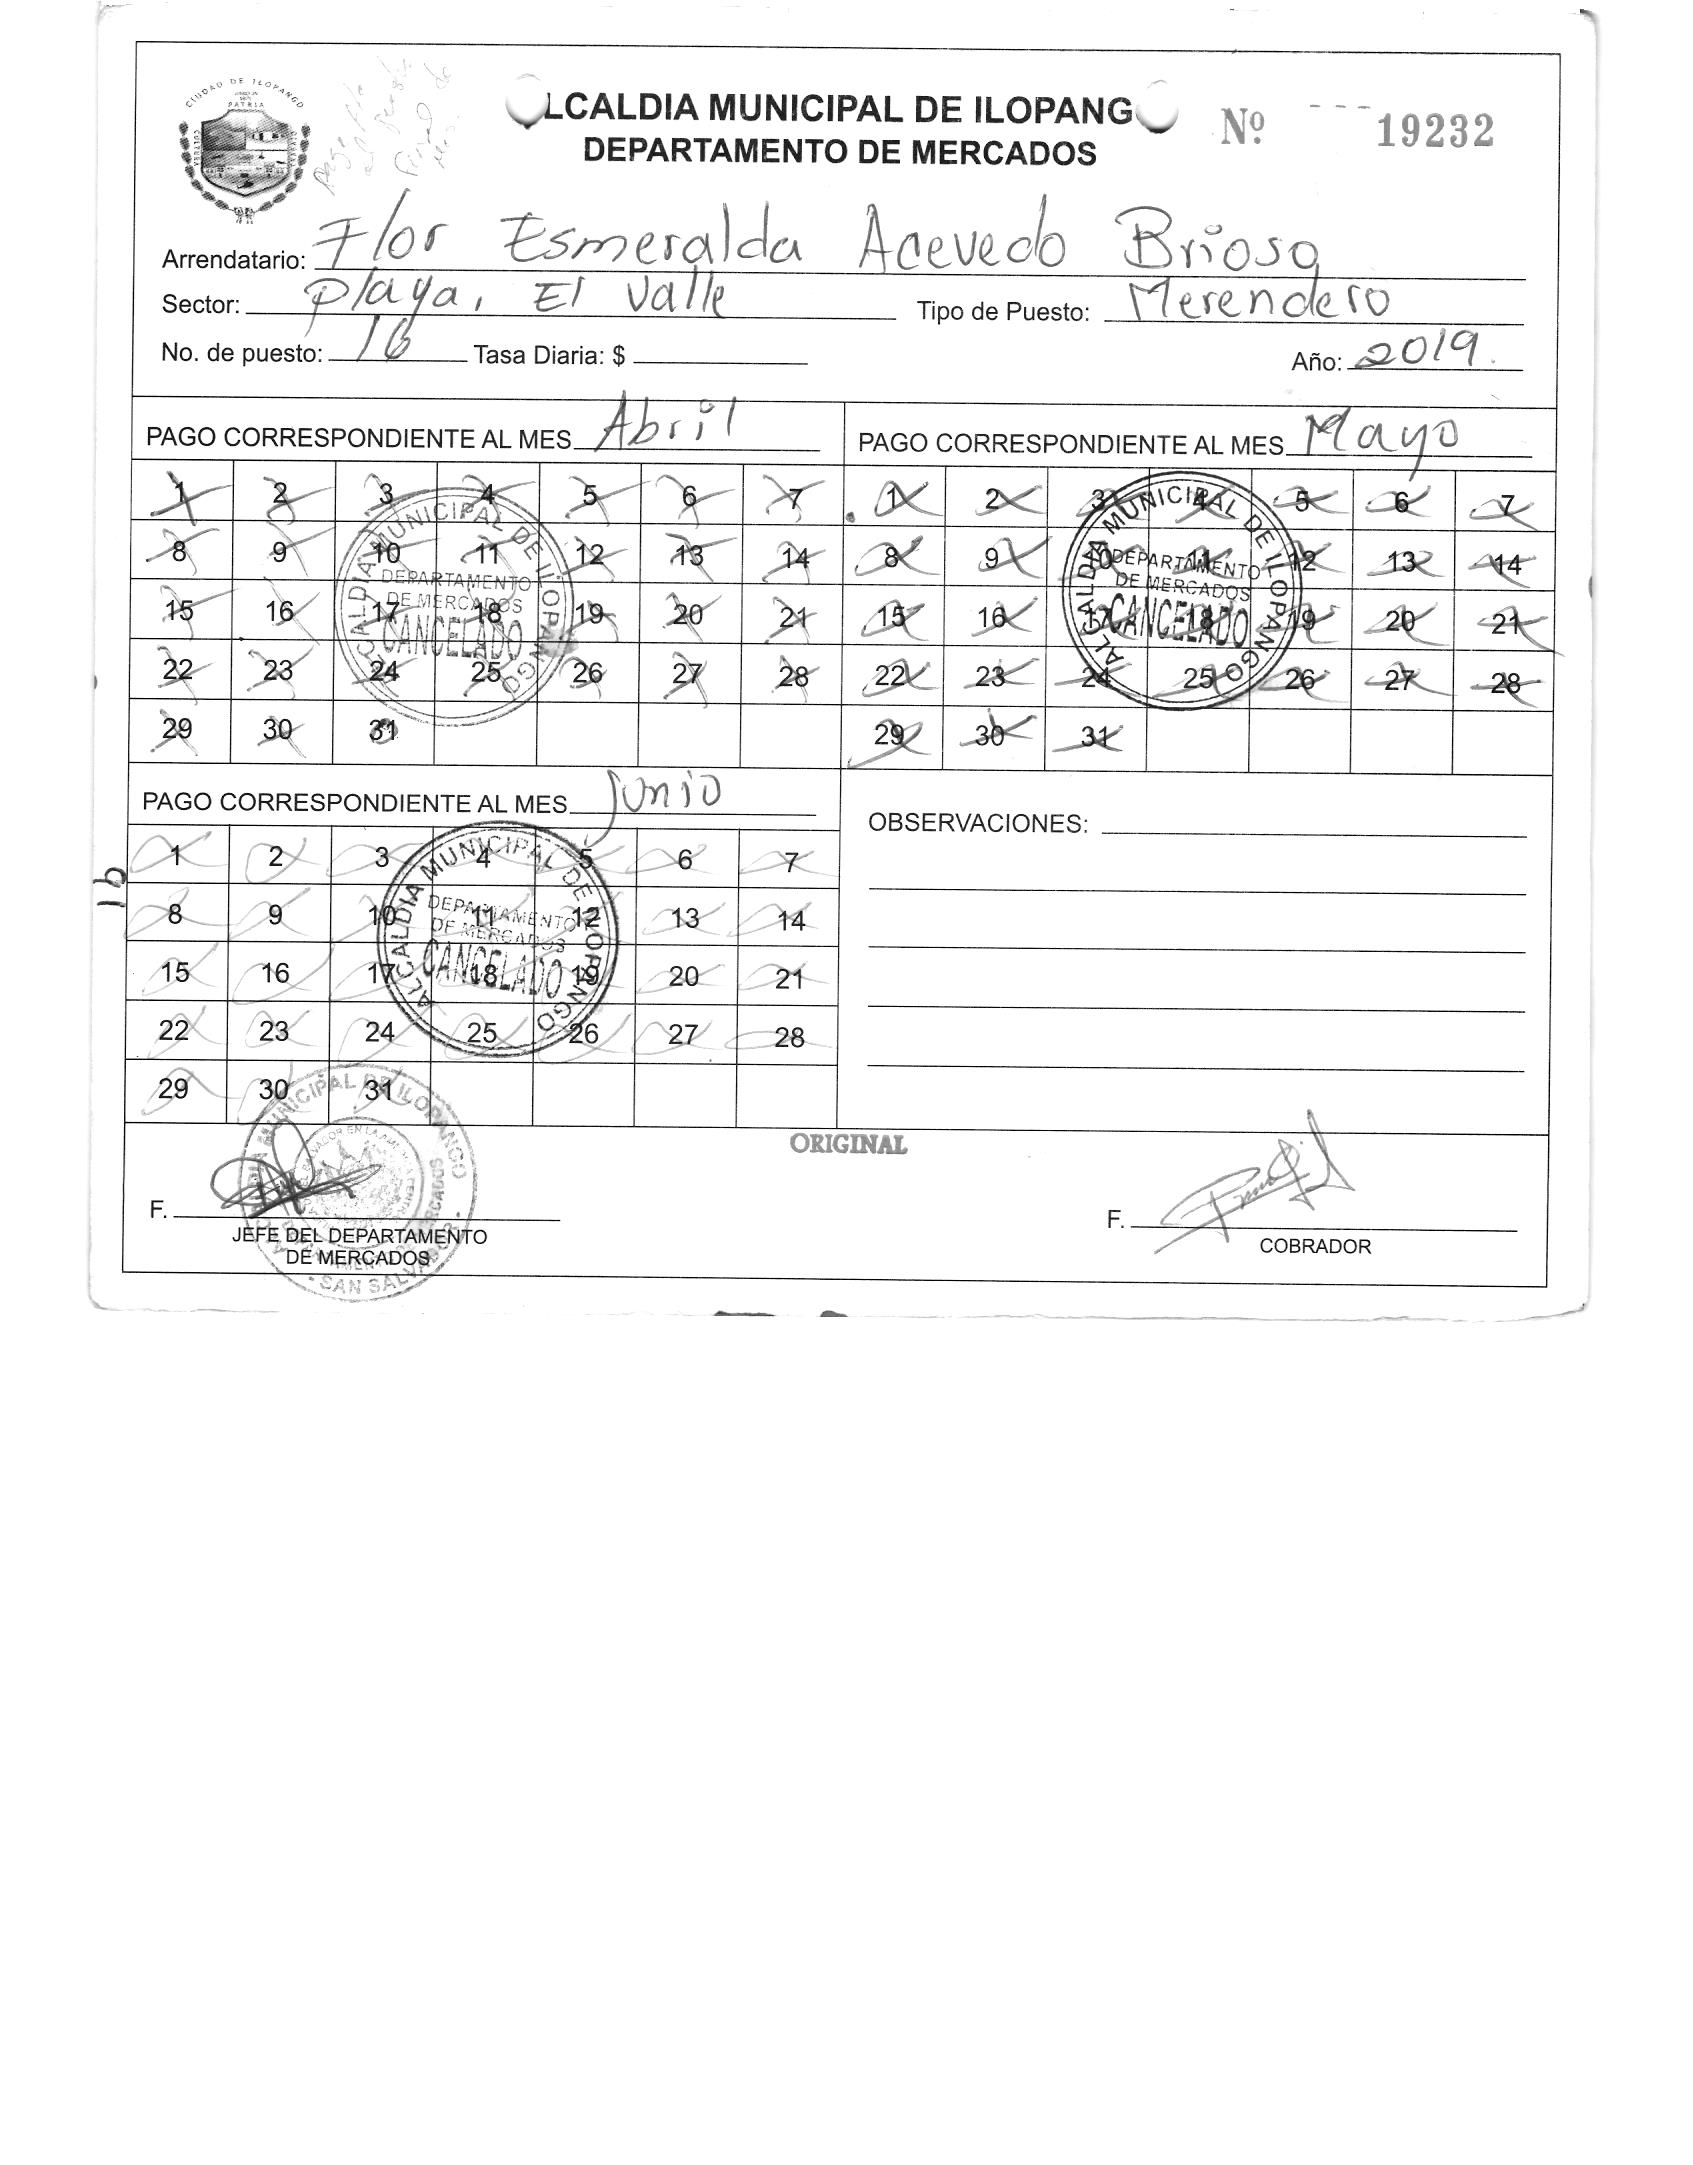 CIUDAD DE ILOPANGO
PATRIA
CULTURA
LCALDIA MUNICIPAL DE ILOPANG
DEPARTAMENTO DE MERCADOS
Nº 19232
Arrendatario: Flor Esmeralda Acevedo Briosa
Sector: Playa, El Valle Tipo de Puesto: Merendero
No. de puesto: 16 Tasa Diaria: $ Año: 2019.
PAGO CORRESPONDIENTE AL MES Abril
1 2 3 4 5 6 7
8 9 10 11 12 13 14
15 16 17 18 19 20 21
22 23 24 25 26 27 28
29 30 31
ALCALDIA MUNICIPAL DE ILOPANGO
DEPARTAMENTO
DE MERCADOS
CANCELADO
PAGO CORRESPONDIENTE AL MES Mayo
1 2 3 4 5 6 7
8 9 10 11 12 13 14
15 16 17 18 19 20 21
22 23 24 25 26 27 28
29 30 31
ALCALDIA MUNICIPAL DE ILOPANGO
DEPARTAMENTO
DE MERCADOS
CANCELADO
PAGO CORRESPONDIENTE AL MES Junio
1 2 3 4 5 6 7
8 9 10 11 12 13 14
15 16 17 18 19 20 21
22 23 24 25 26 27 28
29 30 31
ALCALDIA MUNICIPAL DE ILOPANGO
DEPARTAMENTO
DE MERCADOS
CANCELADO
16
OBSERVACIONES:
ORIGINAL
F.
JEFE DEL DEPARTAMENTO
DE MERCADOS
ALCALDIA MUNICIPAL DE ILOPANGO
SAN SALVADOR
F.
COBRADOR